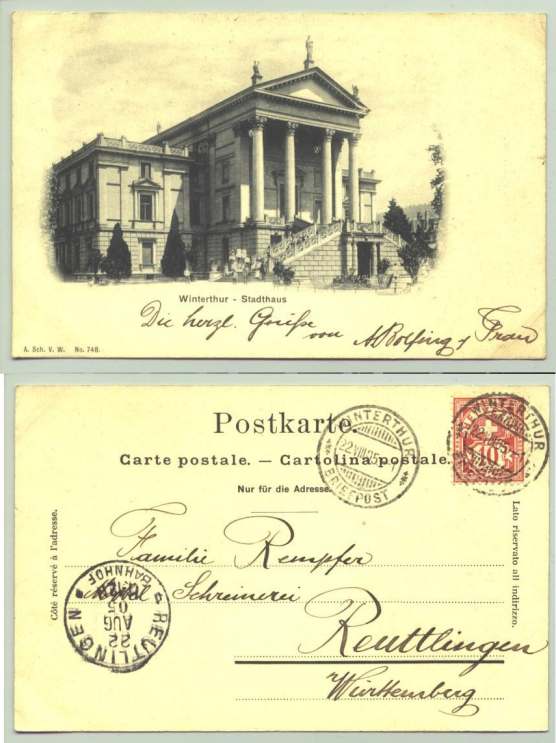 Winterthur - Stadthaus
Die herzl. Grüße
von A Bolfing & Frau
A. Sch. V. W. No. 748.
Postkarte.
Carte postale. — Cartolina postale.
Nur für die Adresse.
Côté réservé à l'adresse.
Lato riservato all indirizzo.
WINTERTHUR
22.VIII.05
BRIEFPOST
WINTERTHUR
10
Familie Rempfer
Schreinerei
Reuttlingen
Württemberg
REUTLINGEN
22
AUG
05
BAHNHOF